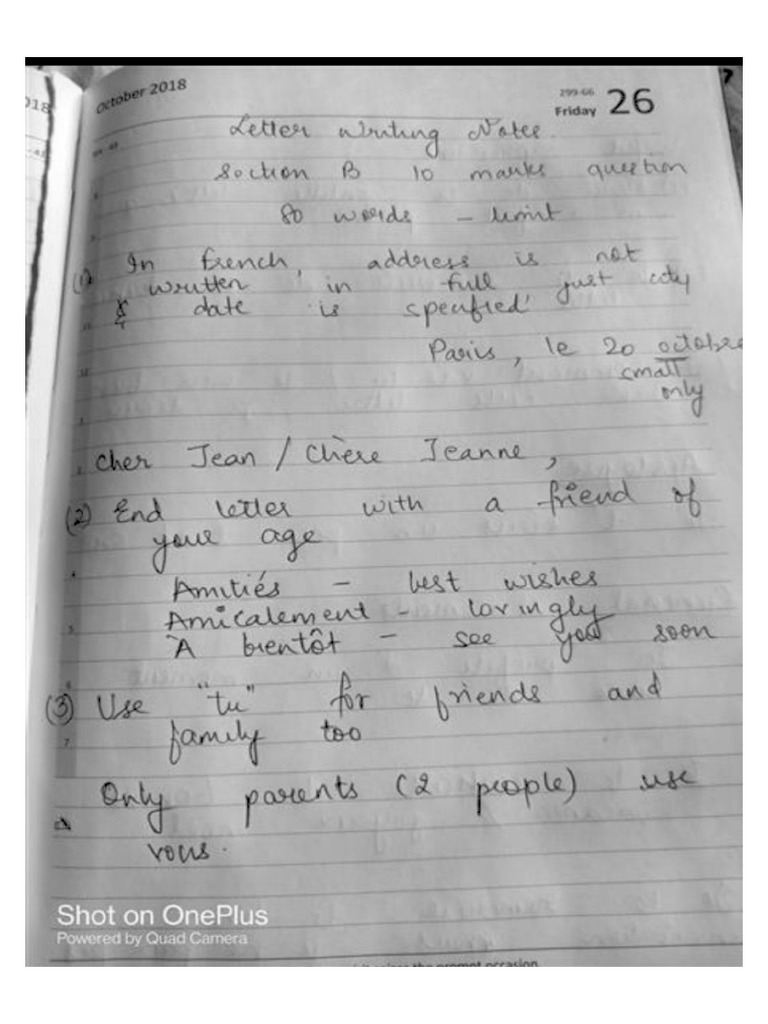 October 2018
299-66
Friday 26
Letter Writing Notes.
Section B 10 marks question
80 words - limit
(1) In French, address is not
written in full just city
& date is specified
Paris, le 20 octobre
small
only
Cher Jean / Chère Jeanne,
(2) End letter with a friend of
your age
Amitiés - best wishes
Amicalement - lovingly
À bientôt - see you soon
(3) Use "tu" for friends and
family too
Only parents (2 people) use
vous.
Shot on OnePlus
Powered by Quad Camera